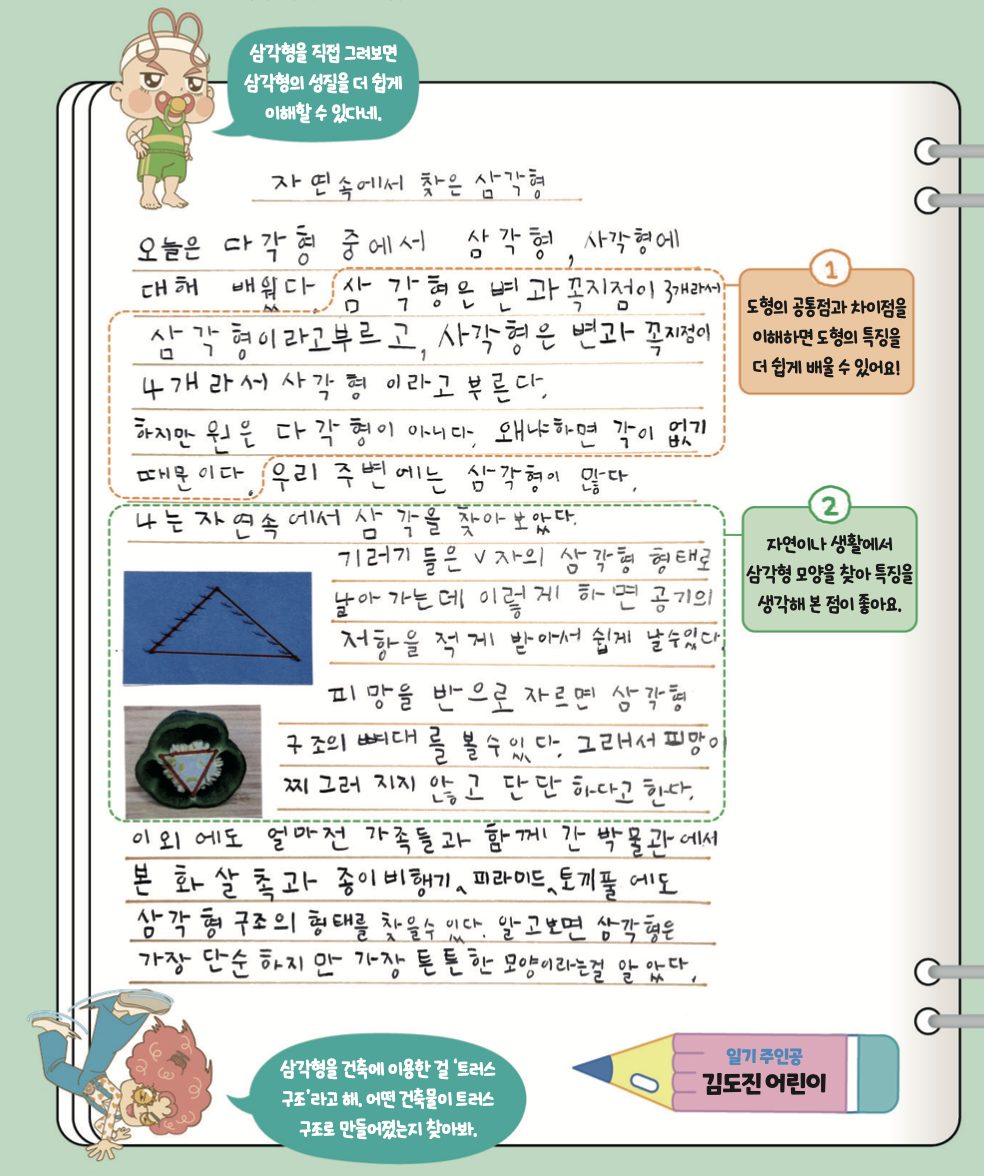 삼각형을 직접 그려보면
삼각형의 성질을 더 쉽게
이해할 수 있다네.
자연속에서 찾은 삼각형
오늘은 다각형 중에서 삼각형, 사각형에
대해 배웠다. 삼각형은 변과 꼭지점이 3개라서
삼각형이라고부르고, 사각형은 변과 꼭지점이
4개라서 사각형이라고 부른다.
하지만 원은 다각형이 아니다. 왜냐하면 각이 없기
때문이다. 우리 주변에는 삼각형이 많다.
나는 자연속에서 삼각을 찾아보았다.
기러기들은 V자의 삼각형 형태로
날아가는데 이렇게 하면 공기의
저항을 적게 받아서 쉽게 날수있다.
피망을 반으로 자르면 삼각형
구조의 뼈대를 볼수있다. 그래서 피망이
찌그러지지 않고 단단하다고 한다.
이외에도 얼마전 가족들과 함께 간 박물관에서
본 화살촉과 종이비행기, 피라미드, 토끼풀에도
삼각형구조의 형태를 찾을수 있다. 알고보면 삼각형은
가장 단순하지만 가장 튼튼한 모양이라는걸 알았다.
1
도형의 공통점과 차이점을
이해하면 도형의 특징을
더 쉽게 배울 수 있어요!
2
자연이나 생활에서
삼각형 모양을 찾아 특징을
생각해 본 점이 좋아요.
삼각형을 건축에 이용한 걸 ‘트러스
구조’라고 해. 어떤 건축물이 트러스
구조로 만들어졌는지 찾아봐.
일기 주인공
김도진 어린이